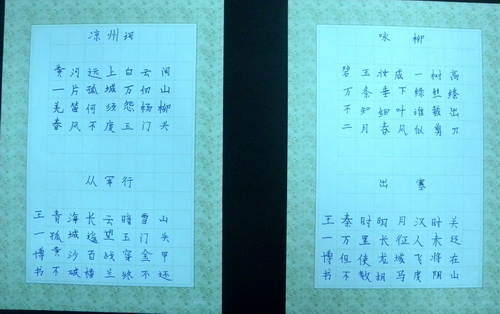 凉州词
黄河远上白云间
一片孤城万仞山
羌笛何须怨杨柳
春风不度玉门关
从军行
青海长云暗雪山
孤城遥望玉门关
黄沙百战穿金甲
不破楼兰终不还
王一博书
咏柳
碧玉妆成一树高
万条垂下绿丝绦
不知细叶谁裁出
二月春风似剪刀
出塞
秦时明月汉时关
万里长征人未还
但使龙城飞将在
不教胡马度阴山
王一博书